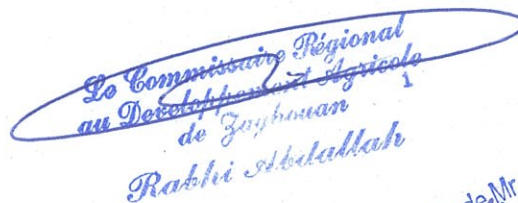 Le Commissaire Régional
au Developpement Agricole
1
de Zaghouan
Rabhi Abdallah
de Mr